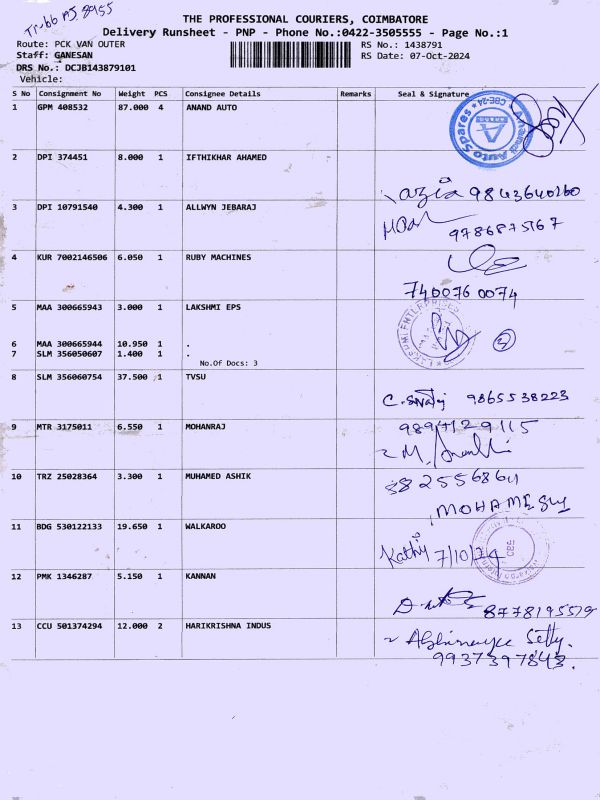 THE PROFESSIONAL COURIERS, COIMBATORE
Delivery Runsheet - PNP - Phone No.:0422-3505555 - Page No.:1
Route: PCK VAN OUTER RS No.: 1438791
Staff: GANESAN RS Date: 07-Oct-2024
DRS No.: DCJB143879101
Vehicle:
S No Consignment No Weight PCS Consignee Details Remarks Seal & Signature
1 GPM 408532 87.000 4 ANAND AUTO
Auto Spares
CBE-24
A
2 DPI 374451 8.000 1 IFTHIKHAR AHAMED
3 DPI 10791540 4.300 1 ALLWYN JEBARAJ
9786875167
4 KUR 7002146506 6.050 1 RUBY MACHINES
740076 0074
5 MAA 300665943 3.000 1 LAKSHMI EPS
6 MAA 300665944 10.950 1 .
7 SLM 356050607 1.400 1 .
No.Of Docs: 3
3
8 SLM 356060754 37.500 1 TVSU
9865538223
9 MTR 3175011 6.550 1 MOHANRAJ
10 TRZ 25028364 3.300 1 MUHAMED ASHIK
11 BDG 530122133 19.650 1 WALKAROO
7/10/24
12 PMK 1346287 5.150 1 KANNAN
13 CCU 501374294 12.000 2 HARIKRISHNA INDUS
9937397843.